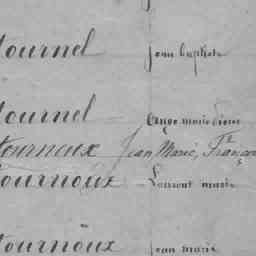 Tournel Jean baptiste
Tournel Ange marie Pierre
Tournoux Jean Marie, François
Tournoux - Laurent marie
Tournoux Jean marie